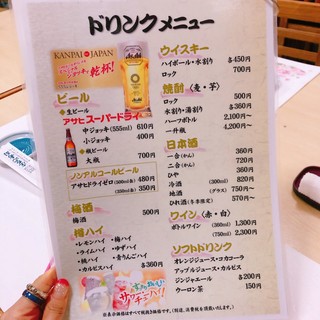 ドリンクメニュー
KANPAI JAPAN
乾杯!
Asahi
ビール
◆生ビール
アサヒスーパードライ
中ジョッキ(555ml) 610円
小ジョッキ 400円
◆瓶ビール
大瓶 780円
ノンアルコールビール
アサヒドライゼロ 480円
350円
梅酒
梅酒 500円
酎ハイ
・レモンハイ ・梅ハイ
・ライムハイ ・ゆずハイ
・桃ハイ ・青りんごハイ
・カルピスハイ 各360円
ウイスキー
ハイボール・水割り 各450円
ロック 700円
焼酎(麦・芋)
ロック 500円
水割り・湯割り 各360円
ハーフボトル 1,200円~
一升瓶 2,100~4,200円~
日本酒
一合(かん) 360円
二合(かん) 720円
ひや 360円
冷酒 (300ml) 820円
焼酒 (グラス) 750円~
ひれ酒(冬季限定) 570円~
ワイン(赤・白)
ボトルワイン (360ml) 1,300円
2,300円
ソフトドリンク
オレンジジュース・コカコーラ
アップルジュース・カルピス
ジンジャエール 各200円
ウーロン茶 150円